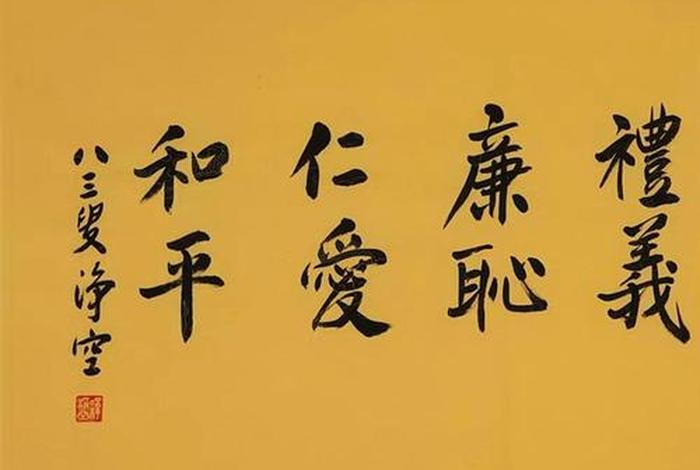 禮義
廉恥
仁愛
和平
八三叟淨空